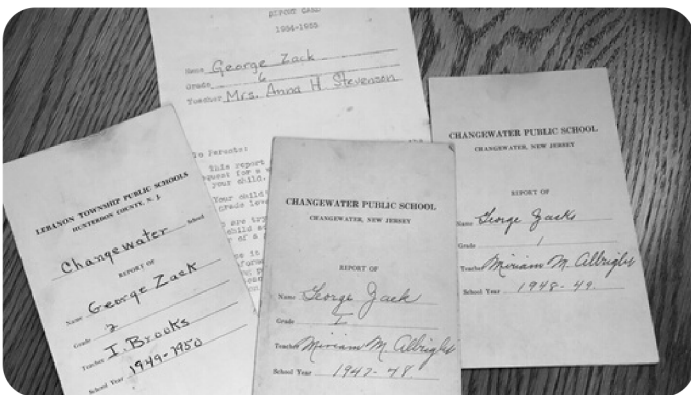 REPORT CARD
1954-1955
Name George Zack
Grade 6
Teacher Mrs. Anna H Stevenson
To Parents:
This report
for a
your child.
Your child
grade
are
child
of a
LEBANON TOWNSHIP PUBLIC SCHOOLS
HUNTERDON COUNTY, N. J.
Changewater School
REPORT OF
Name George Zack
Grade 2
Teacher I. Brooks
School Year 1949-1950
CHANGEWATER PUBLIC SCHOOL
CHANGEWATER, NEW JERSEY
REPORT OF
Name George Zack
Grade I
Teacher Miriam M. Albright
School Year 1947-48
CHANGEWATER PUBLIC SCHOOL
CHANGEWATER, NEW JERSEY
REPORT OF
Name George Zacks
Grade 1
Teacher Miriam M. Albright
School Year 1948-49.